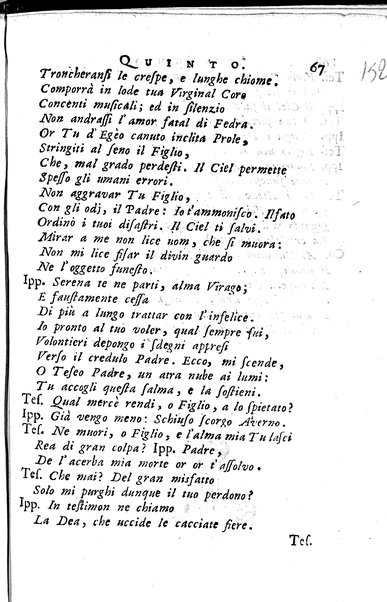 QUINTO. 67
152
Troncheransi le crespe, e lunghe chiome.
Comporrà in lode tua Virginal Coro
Concenti musicali; ed in silenzio
Non andrassi l'amor fatal di Fedra.
Or Tu d'Egèo canuto inclita Prole,
Stringiti al seno il Figlio,
Che, mal grado perdesti. Il Ciel permette
Spesso gli umani errori.
Non aggravar Tu Figlio,
Con gli odj, il Padre: Io t'ammonisco. Il fato
Ordinò i tuoi disastri. Il Ciel ti salvi.
Mirar a me non lice uom, che si muora:
Non mi lice fisar il divin guardo
Ne l'oggetto funesto.
Ipp. Serena te ne parti, alma Virago;
E faustamente cessa
Di più a lungo trattar con l'infelice.
Io pronto al tuo voler, qual sempre fui,
Volontieri depongo i sdegni appresi
Verso il credulo Padre. Ecco, mi scende,
O Teseo Padre, un atra nube ai lumi:
Tu accogli questa salma, e la sostieni.
Tes. Qual mercè rendi, o Figlio, a lo spietato?
Ipp. Già vengo meno: Schiuso scorgo Averno.
Tes. Ne muori, o Figlio, e l'alma mia Tu lasci
Rea di gran colpa? Ipp. Padre,
De l'acerba mia morte or or t'assolvo.
Tes. Che mai? Del gran misfatto
Solo mi purghi dunque il tuo perdono?
Ipp. In testimon ne chiamo
La Dea, che uccide le cacciate fiere.
Tes.